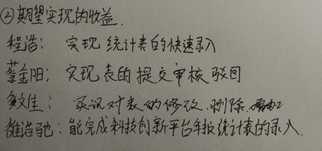 ②期望实现的收益.
程浩: 实现统计表的快速录入
蔡金阳: 实现表的提交审核驳回
文佳: 对表的修改、删除、
: 能完成科技创新平台年报统计表的录入.